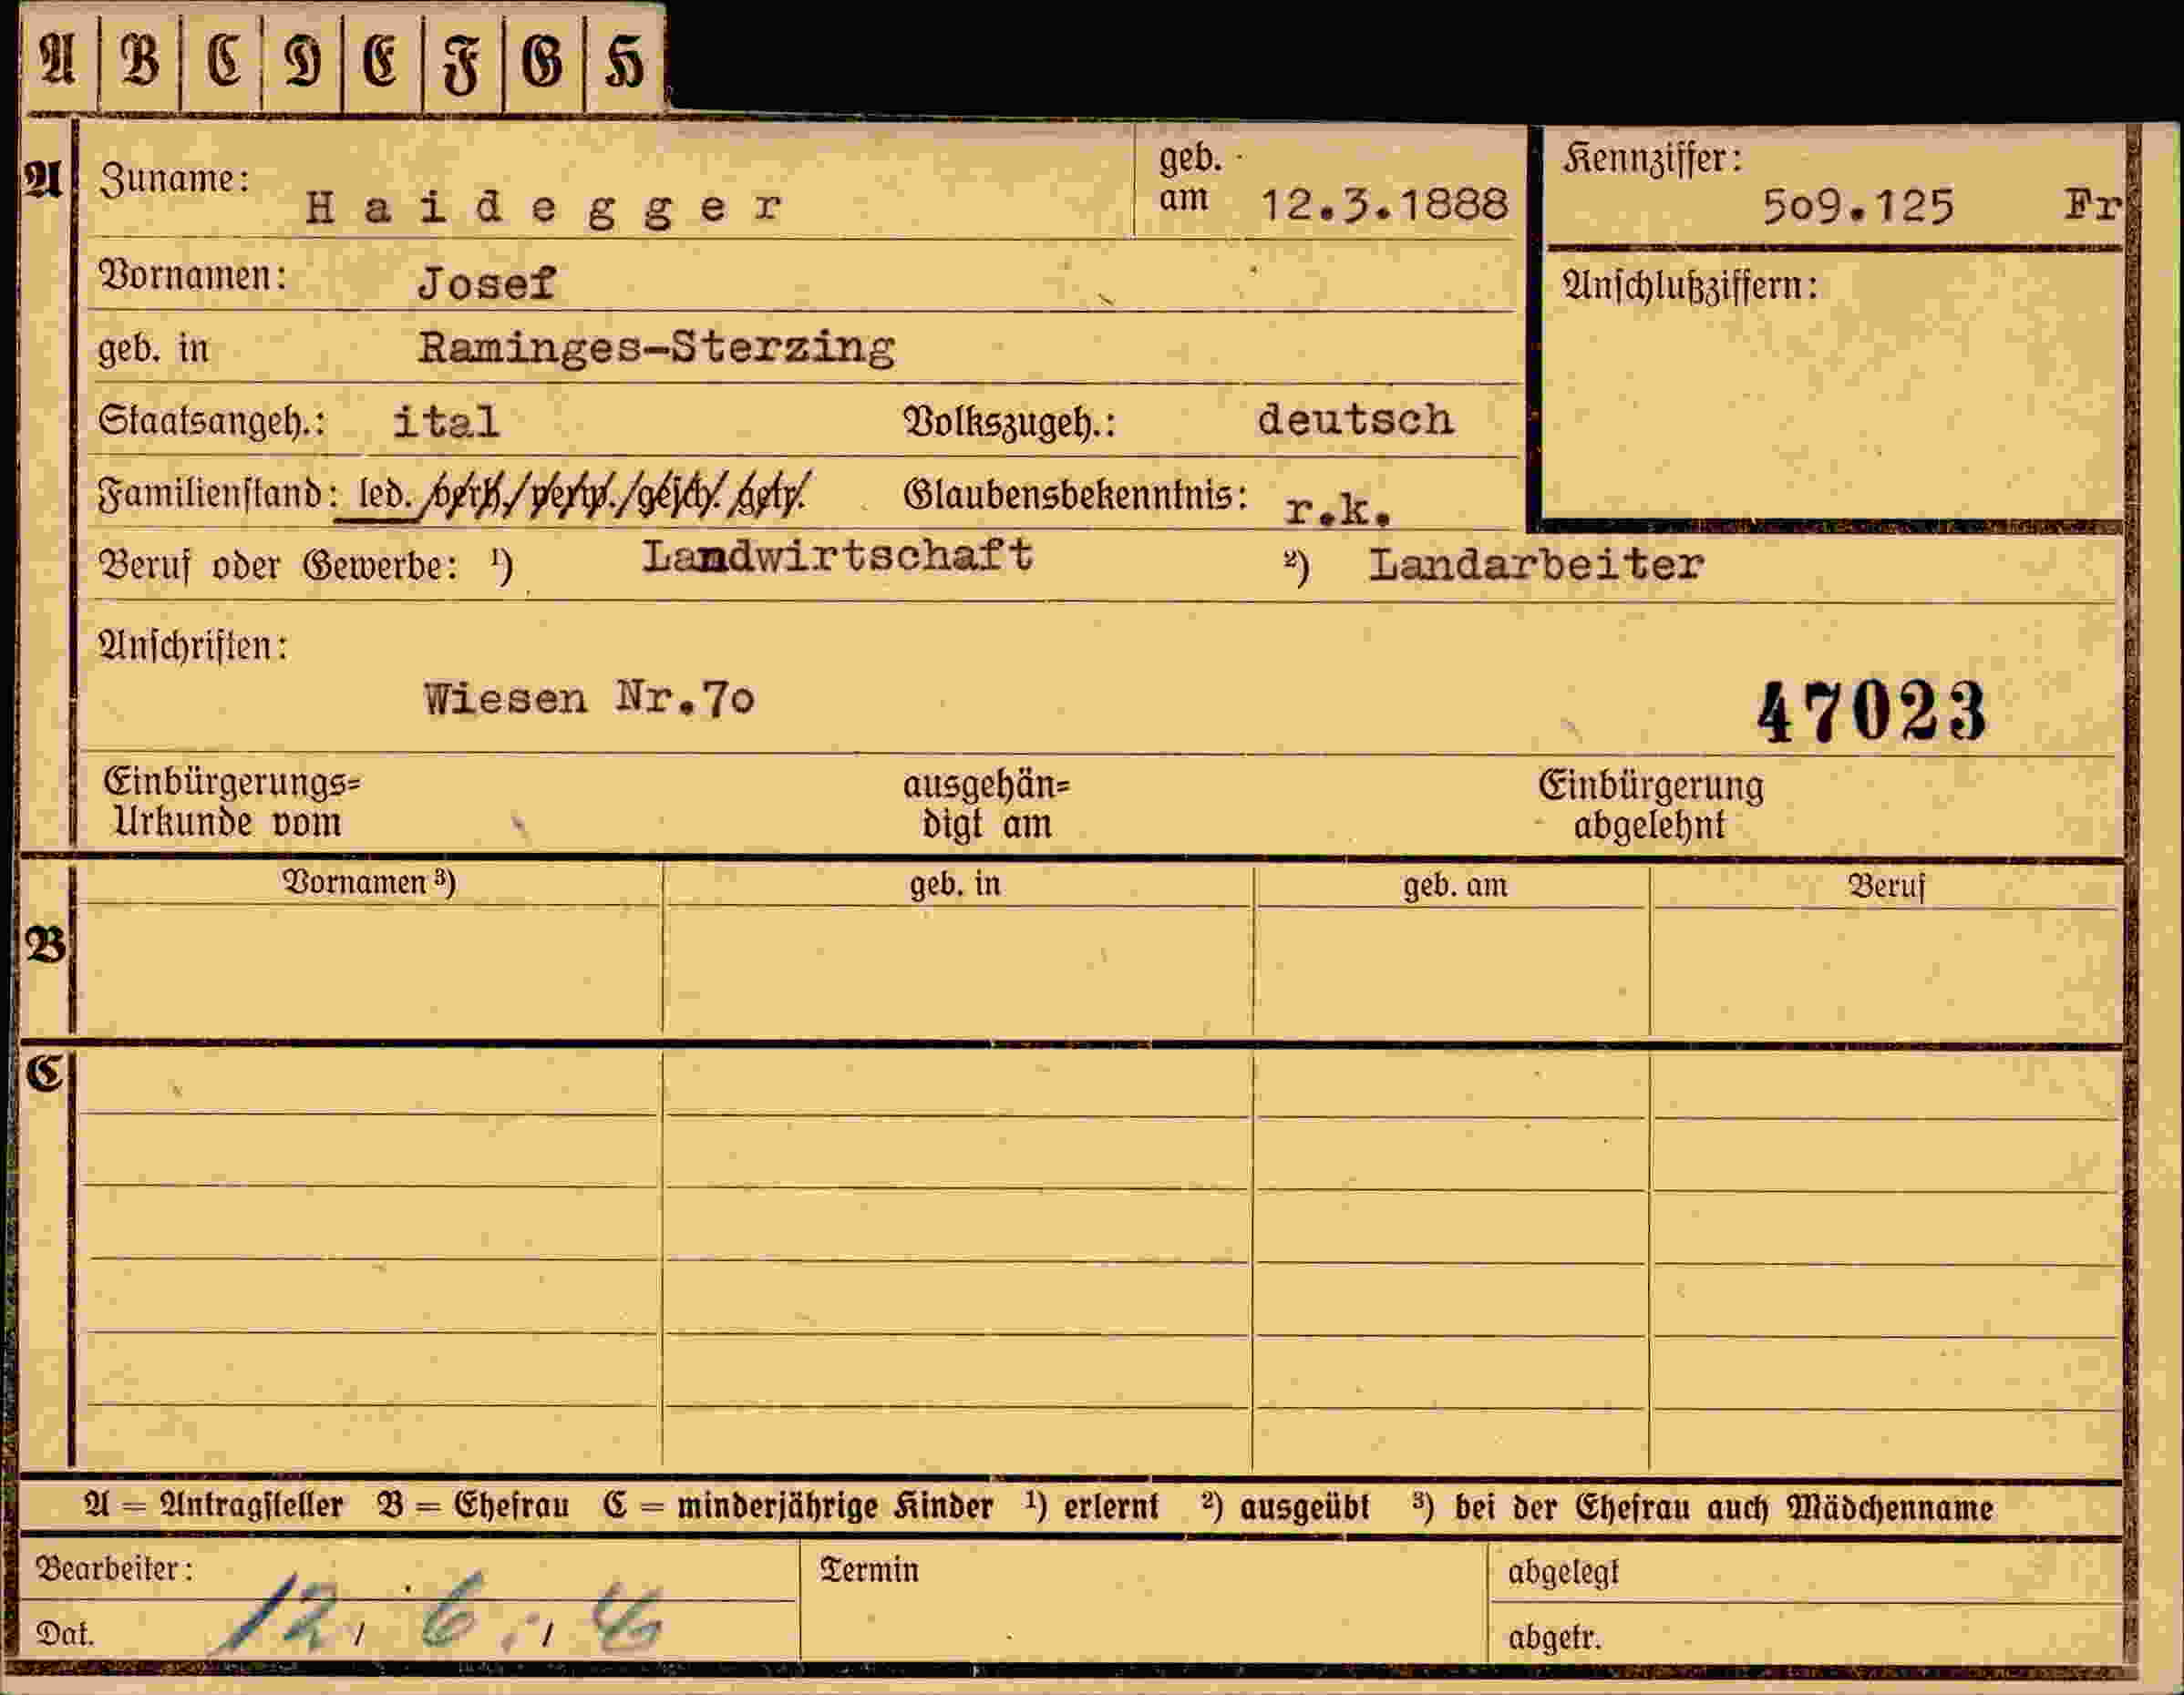 A B C D E F G H
A Zuname: Haidegger geb. am 12.3.1888 Kennziffer: 5o9.125 Fr
Vornamen: Josef Anschlußziffern:
geb. in Raminges-Sterzing
Staatsangeh.: ital Volkszugeh.: deutsch
Familienstand: led. /verh./verw./gesch./getr. Glaubensbekenntnis: r.k.
Beruf oder Gewerbe: ¹) Landwirtschaft ²) Landarbeiter
Anschriften:
Wiesen Nr.7o 47023
Einbürgerungs= ausgehän= Einbürgerung
Urkunde vom digt am abgelehnt
Vornamen ³) geb. in geb. am Beruf
B
C
A = Antragsteller B = Ehefrau C = minderjährige Kinder ¹) erlernt ²) ausgeübt ³) bei der Ehefrau auch Mädchenname
Bearbeiter: Termin abgelegt
Dat. 12. 6. abgetr.